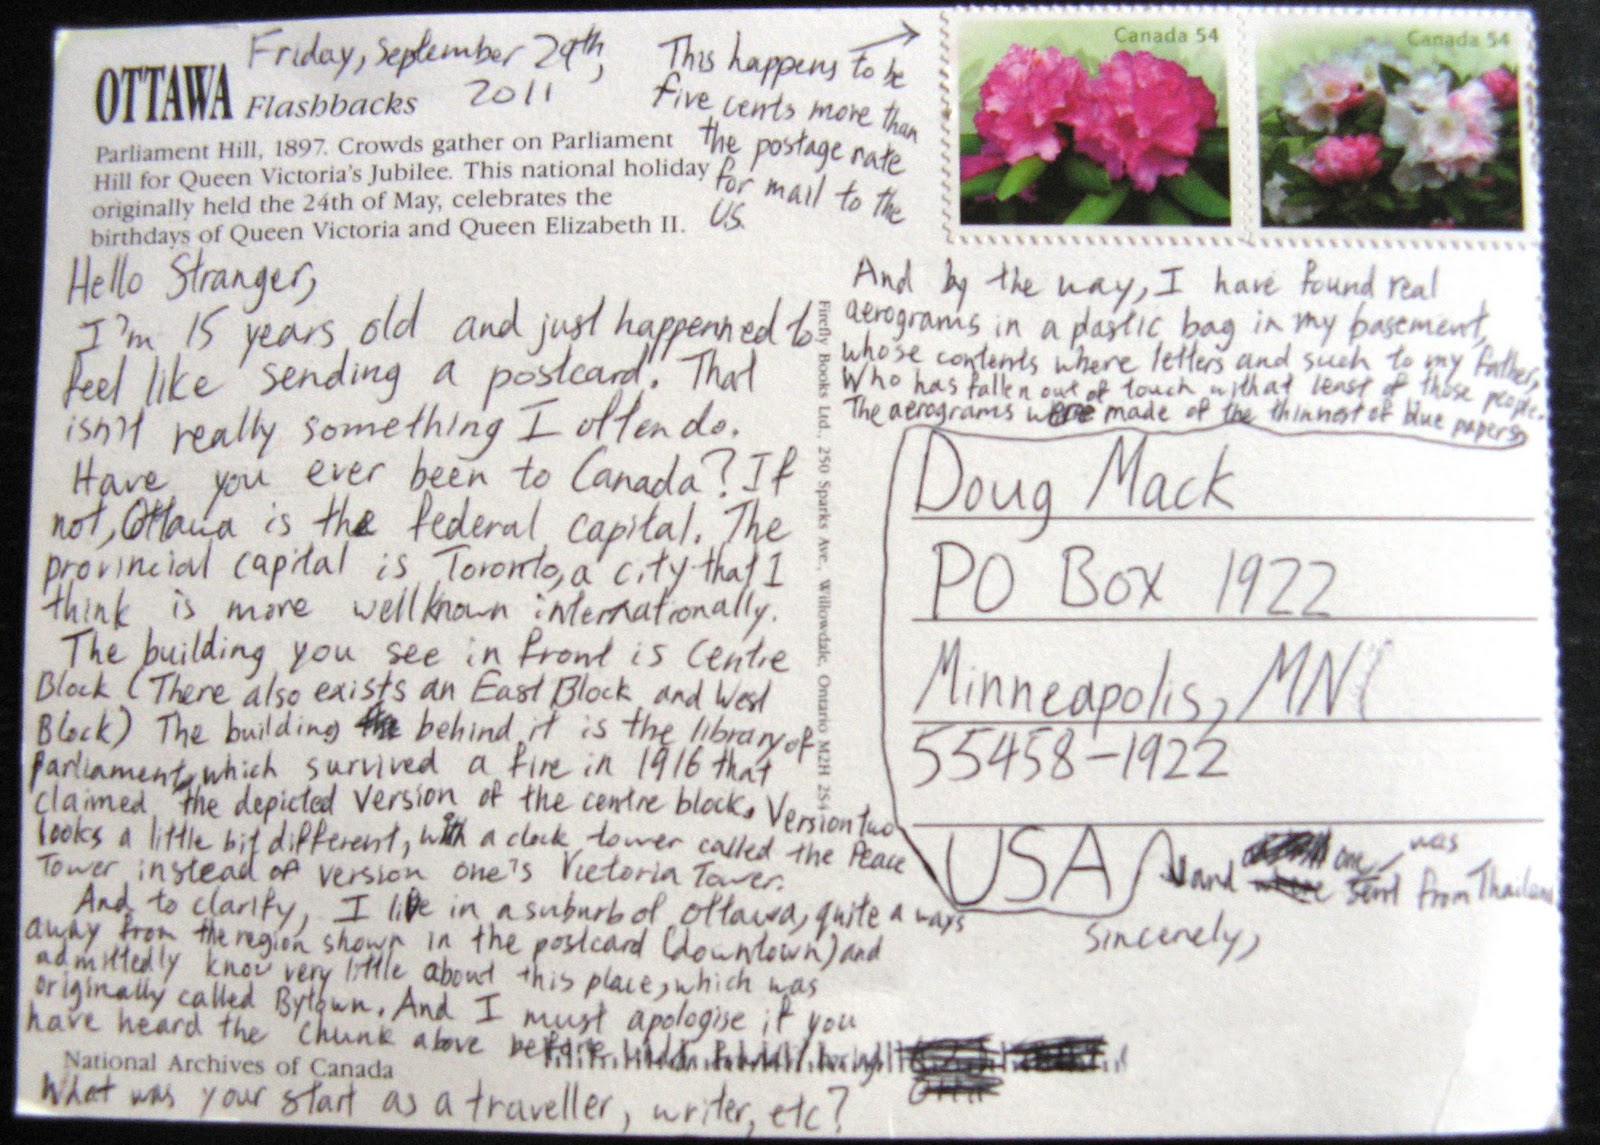 Friday, September 29th,
2011
OTTAWA Flashbacks
Parliament Hill, 1897. Crowds gather on Parliament
Hill for Queen Victoria's Jubilee. This national holiday
originally held the 24th of May, celebrates the
birthdays of Queen Victoria and Queen Elizabeth II.
This happens to be
five cents more than
the postage rate
for mail to the
U.S.
Canada 54
Canada 54
Hello Stranger,
I'm 15 years old and just happenned to
feel like sending a postcard. That
isn't really something I often do.
Have you ever been to Canada? If
not, Ottawa is the federal capital. The
provincial capital is Toronto, a city that I
think is more wellknown internationally.
The building you see in front is Centre
Block (There also exists an East Block and West
Block) The building behind it is the library of
Parliament, which survived a fire in 1916 that
claimed the depicted version of the centre block. Version two
looks a little bit different, with a clock tower called the Peace
Tower instead of version one's Victoria Tower.
And to clarify, I live in a suburb of Ottawa, quite a ways
away from the region shown in the postcard (downtown) and
admittedly know very little about this place, which was
originally called Bytown. And I must apologise if you
have heard the chunk above before
National Archives of Canada
What was your start as a traveller, writer, etc?
Firefly Books Ltd., 250 Sparks Ave., Willowdale, Ontario M2H 2S4
And by the way, I have found real
aerograms in a plastic bag in my basement,
whose contents where letters and such to my father,
who has fallen out of touch with at least of those people.
The aerograms were made of the thinnest of blue papers
Doug Mack
PO Box 1922
Minneapolis, MN
55458-1922
USA
and one was
sent from Thailand
Sincerely,